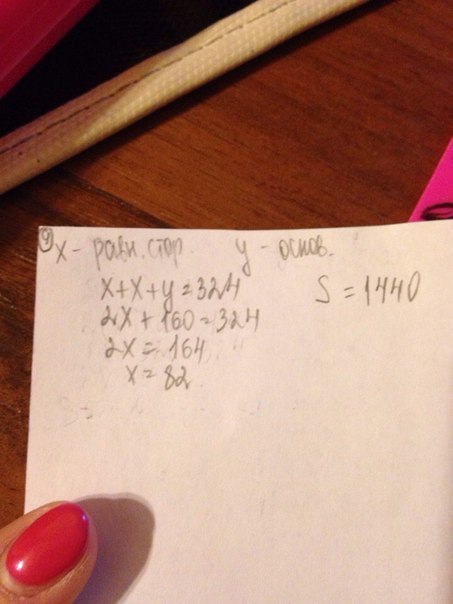 9 x - равн. стор. y - основ.
x+x+y=324
2x+160=324
2x=164
x=82
S=
S=1440